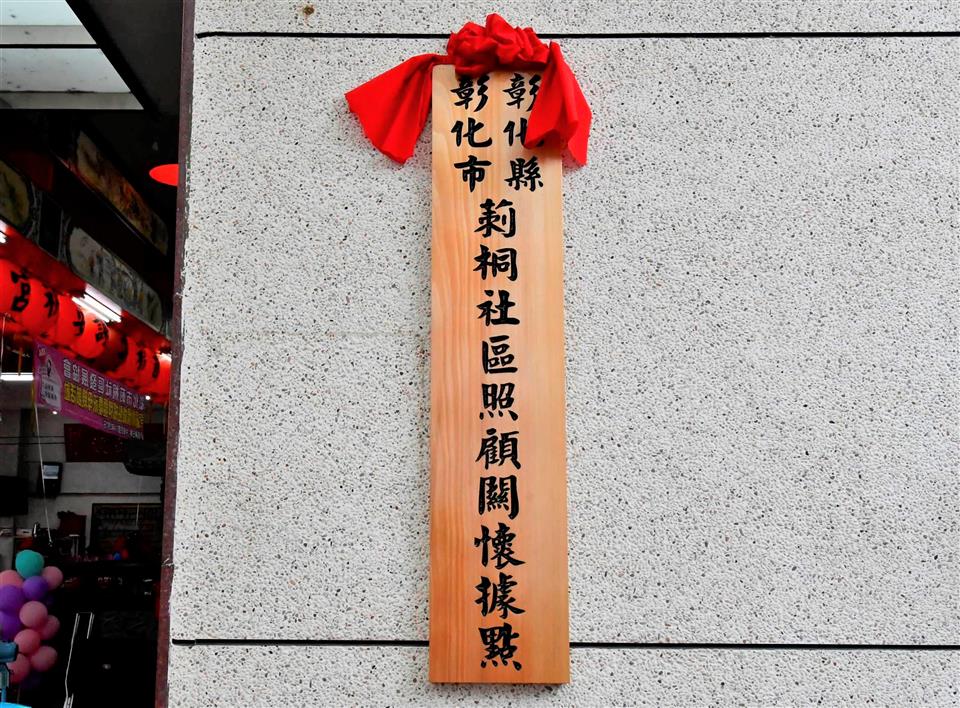 彰化縣
彰化市
莿桐社區照顧關懷據點